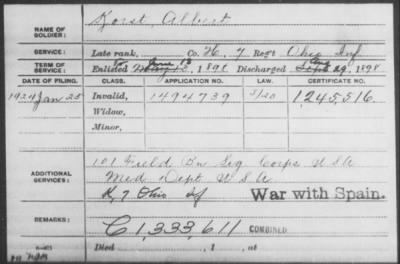 NAME OF SOLDIER: Korst, Albert
SERVICE: Late rank, Co. H, 7 Reg't Ohio Inf
TERM OF SERVICE: Enlisted May 13, 1898 Discharged Aug 29, 1898
DATE OF FILING. CLASS. APPLICATION NO. LAW. CERTIFICATE NO.
1924 Jan 25 Invalid, 1494739 5/20 1,245,516.
Widow,
Minor,
ADDITIONAL SERVICES: 101 Field Bn Sig Corps U S A
Med Dept U S A
H, 7 Ohio Inf War with Spain.
REMARKS: C 1,333,611 COMBINED
Died , 1 , at